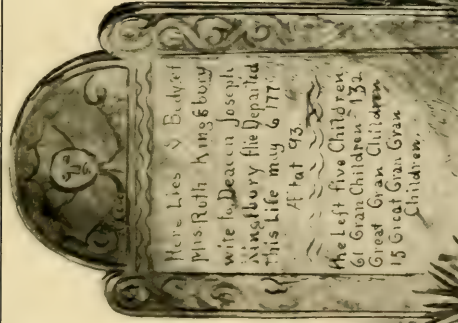 Here Lies y Body of
Mrs. Ruth Kingsbury
wife to Deacon Joseph
Kingsbury she Departed
this Life may 6 177
Ætat 93.
she Left five Children
61 Gran Children 132
Great Gran Children
15 Great Gran Gran
Children.